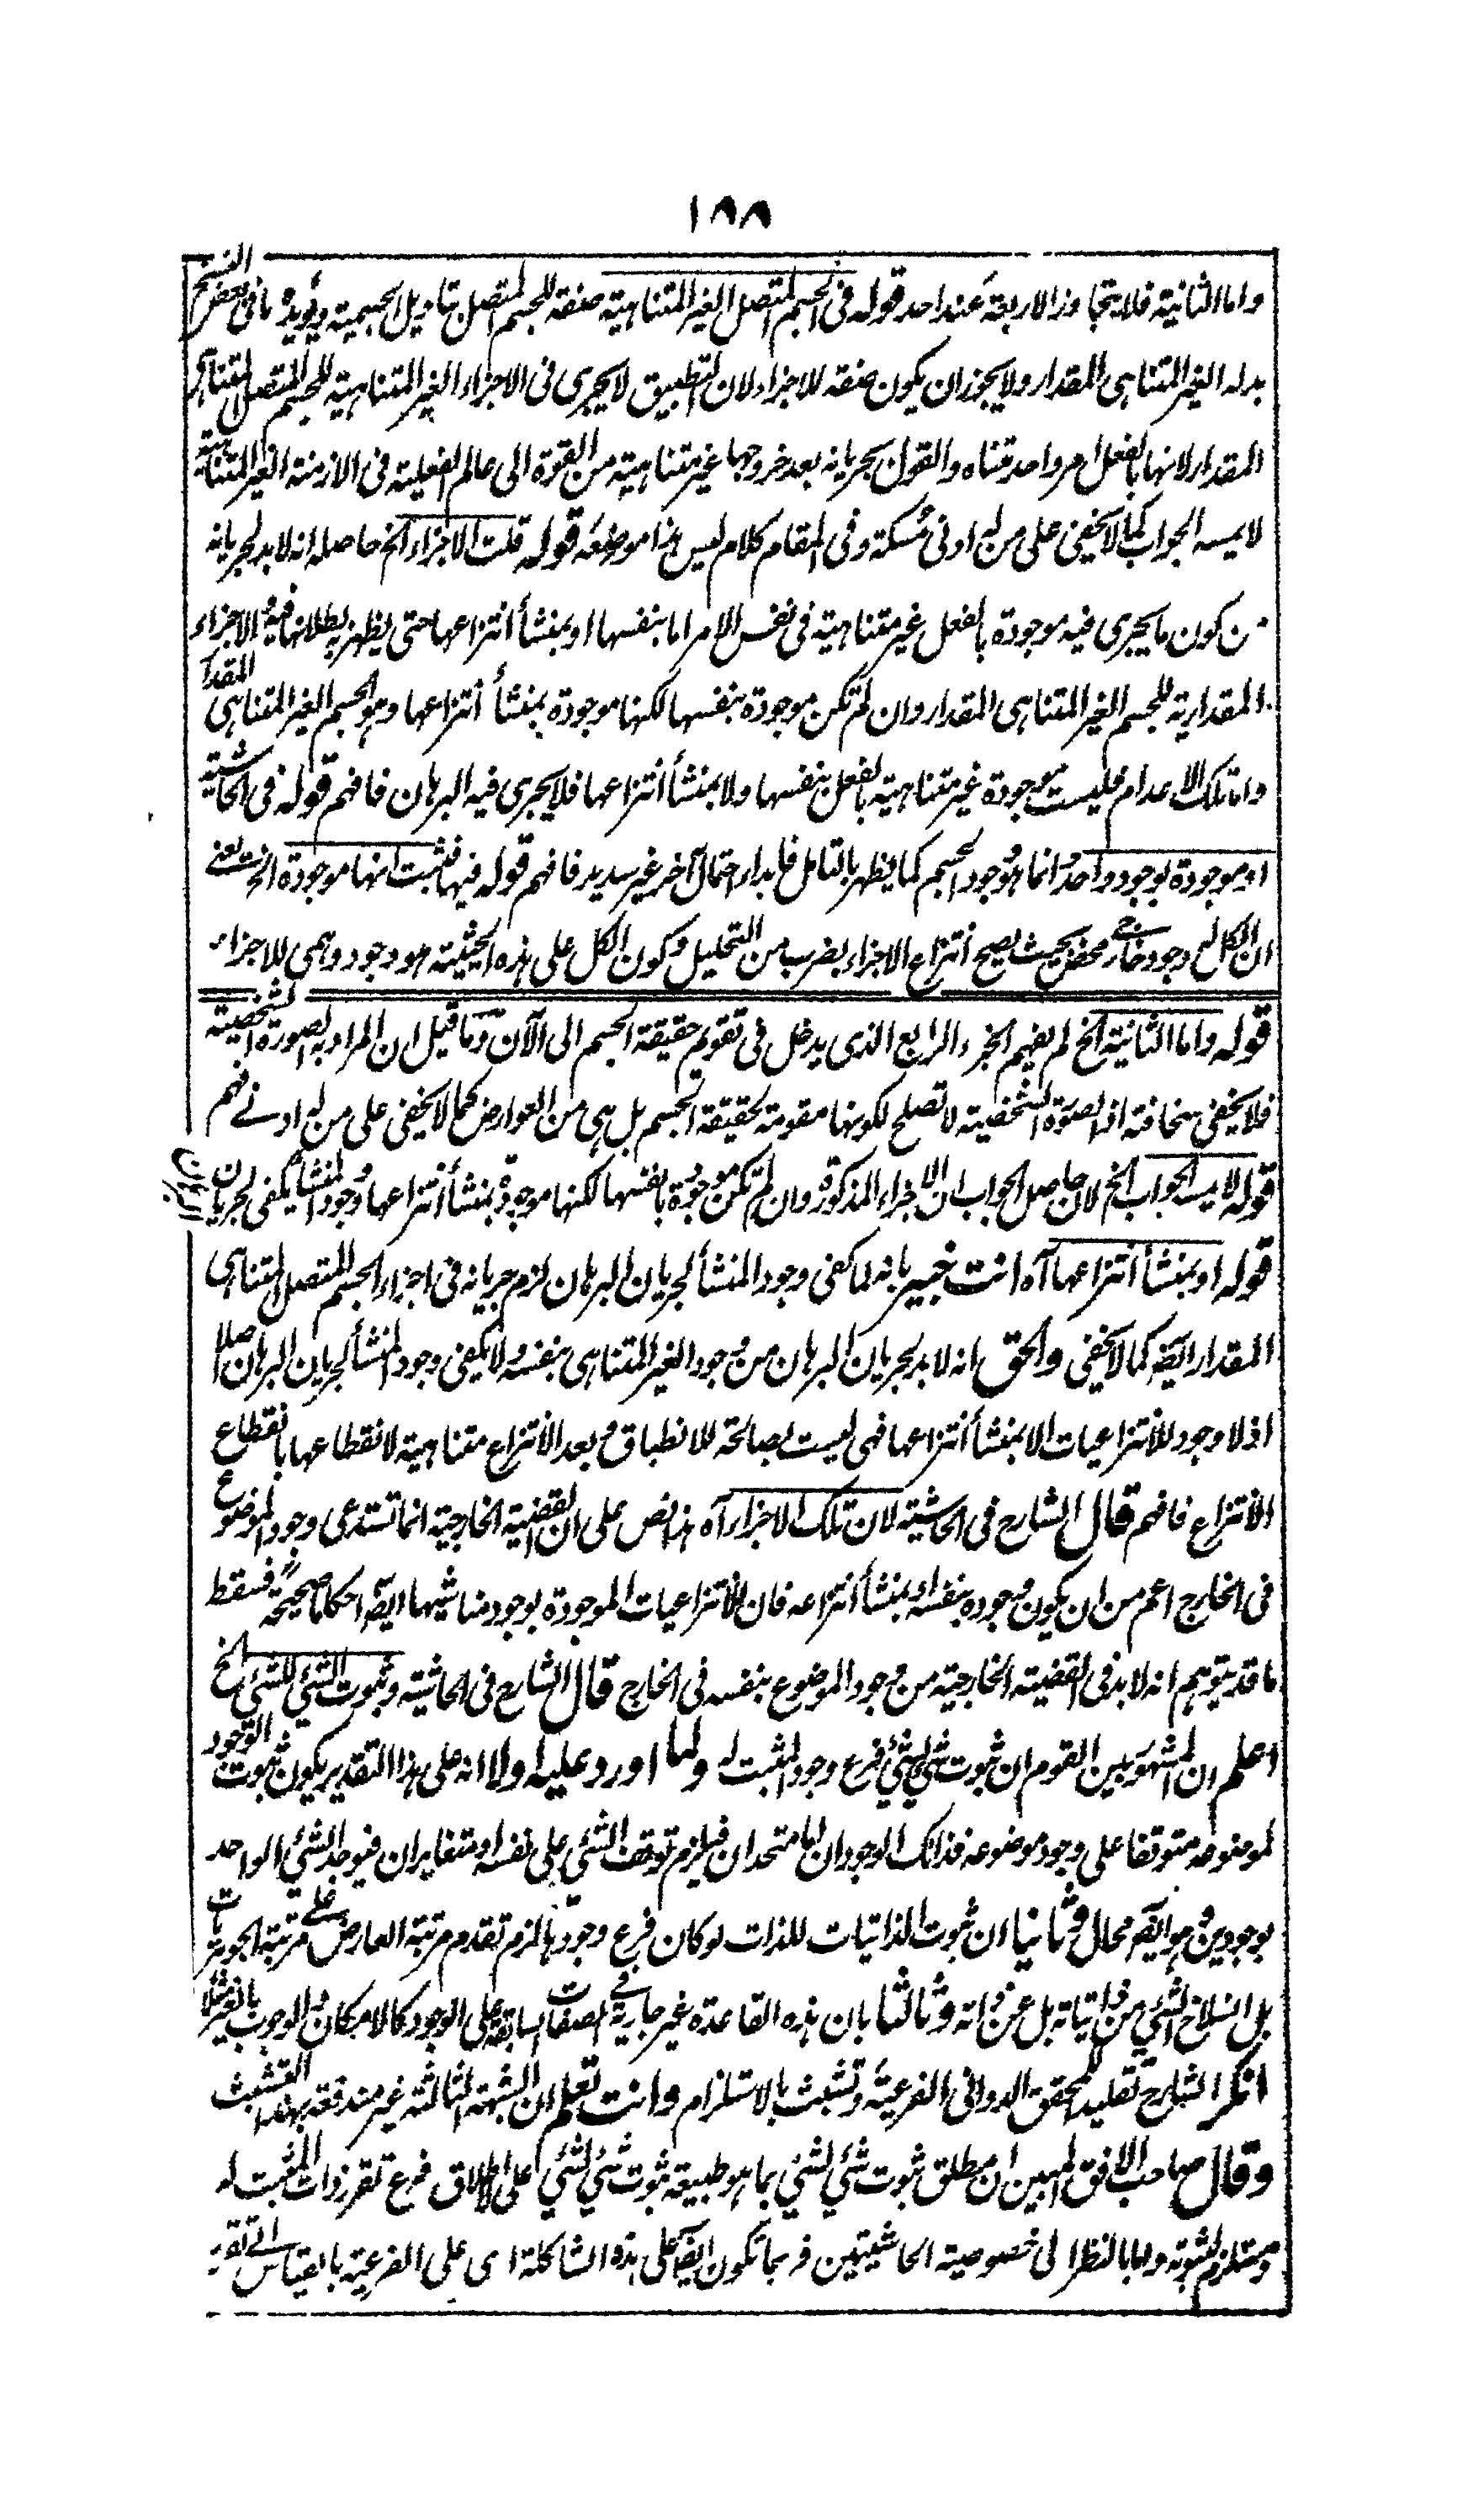 ١٨٨
واما الثانية فلا يتجاوز الاربعة عند احد قوله فى الجسم المتصل الغير المتناهية صفة للجسم المتصل بتاويل الجسمية ويؤيده ما فى بعض النسخ
بدله الغير المتناهى المقدار ولا يجوز ان يكون صفة للاجزاء لان التطبيق لا يجرى فى الاجزاء الغير المتناهية للجسم المتصل المتناهى
المقدار لانها بالفعل امر واحد متناه والقول بجريانه بعد خروجها غير متناهية من القوة الى عالم الفعلية فى الازمنة الغير المتناهية
لا يمسه الجواب كما لا يخفى على من له ادنى مسكة وفى المقام كلام ليس هذا موضعه قوله قلت الاجزاء الخ حاصله انه لا بد لجريانه
من كون ما يجرى فيه موجودة بالفعل غير متناهية فى نفس الامر اما بنفسها او بمنشأ انتزاعها حتى يظهر به بطلانها فيه الاجزاء
المقدارية للجسم الغير المتناهى المقدار وان لم تكن موجودة بنفسها لكنها موجودة بمنشأ انتزاعها وهو الجسم الغير المتناهى المقدار
واما تلك الاعدام فليست موجودة غير متناهية بالفعل بنفسها ولا بمنشأ انتزاعها فلا يجرى فيه البرهان فافهم قوله فى الحاشية
او موجودة بوجود واحد انما هو وجود الجسم كما يظهر بالتامل فابداء احتمال آخر غير سديد فافهم قوله فيها فثبت انها موجودة الخ يعنى
ان الكل له وجود خارجى محض بحيث يصح انتزاع الاجزاء بضرب من التحليل وكون الكل على هذه الحيثية هو وجود وهمى للاجزاء
قوله واما الثانية الخ لم يفهم الجزء الرابع الذى يدخل فى تقويم حقيقة الجسم الى الآن وما قيل ان المراد به الصورة الشخصية
فلا يخفى سخافته اذ الصورة الشخصية لا تصلح لكونها مقومة لحقيقة الجسم بل هى من العوارض كما لا يخفى على من له ادنى فهم
قوله لا يمسه الجواب الخ لان حاصل الجواب ان الاجزاء المذكورة وان لم تكن موجودة بانفسها لكنها موجودة بمنشأ انتزاعها ووجود المنشأ يكفى لجريان البرهان
قوله او بمنشأ انتزاعها آه انت خبير بانه لما كفى وجود المنشأ لجريان البرهان لزم جريانه فى اجزاء الجسم المتصل المتناهى
المقدار ايضا كما لا يخفى والحق انه لا بد لجريان البرهان من وجود الغير المتناهى بنفسه ولا يكفى وجود المنشأ لجريان البرهان اصلا
اذ لا وجود للانتزاعيات الا بمنشأ انتزاعها فهى ليست بصالحة للانطباق وبعد الانتزاع متناهية لانقطاعها بانقطاع
الانتزاع فافهم قال الشارح فى الحاشية لان تلك الاجزاء آه هذا نص على ان القضية الخارجية انما تستدعى وجود الموضوع
فى الخارج اعم من ان يكون وجوده بنفسه او بمنشأ انتزاعه فان للانتزاعيات الموجودة بوجود مناشيها ايضا احكاما صحيحة فسقط
ما قد يتوهم انه لا بد فى القضية الخارجية من وجود الموضوع بنفسه فى الخارج قال الشارح فى الحاشية وثبوت الشئ للشئ الخ
اعلم ان المشهور بين القوم ان ثبوت شئ لشئ فرع وجود المثبت له ولما اورد عليه اولا انه على هذا التقدير يكون ثبوت الوجود
لموضوعه متوقفا على وجود موضوعه فذانك الوجودان اما متحدان فيلزم توقف الشئ على نفسه او متغايران فيوجد الشئ الواحد
بوجودين وهو ايضا محال وثانيا ان ثبوت الذاتيات للذات لو كان فرع وجودها لزم تقدم مرتبة العارض على مرتبة الجوهريات
بل انسلاخ الشئ من ذاتياته بل عن ذاته وثالثا بان هذه القاعدة غير جارية فى الصفات السابقة على الوجود كالامكان والوجوب بالغير مثلا
انكر الشارح تقليد المحقق الدوانى الفرعية وتشبث بالاستلزام وانت تعلم ان الشبهة الثالثة غير مندفعة بهذا التشبث
وقال صاحب الافق المبين ان مطلق ثبوت شئ لشئ بما هو طبيعة ثبوت شئ لشئ على الاطلاق فرع تقرر ذات المثبت له
ومستلزم لثبوته واما بالنظر الى خصوصية الحاشيتين فربما تكون ايضا على هذه الشاكلة اى على الفرعية بالقياس الى تقرر